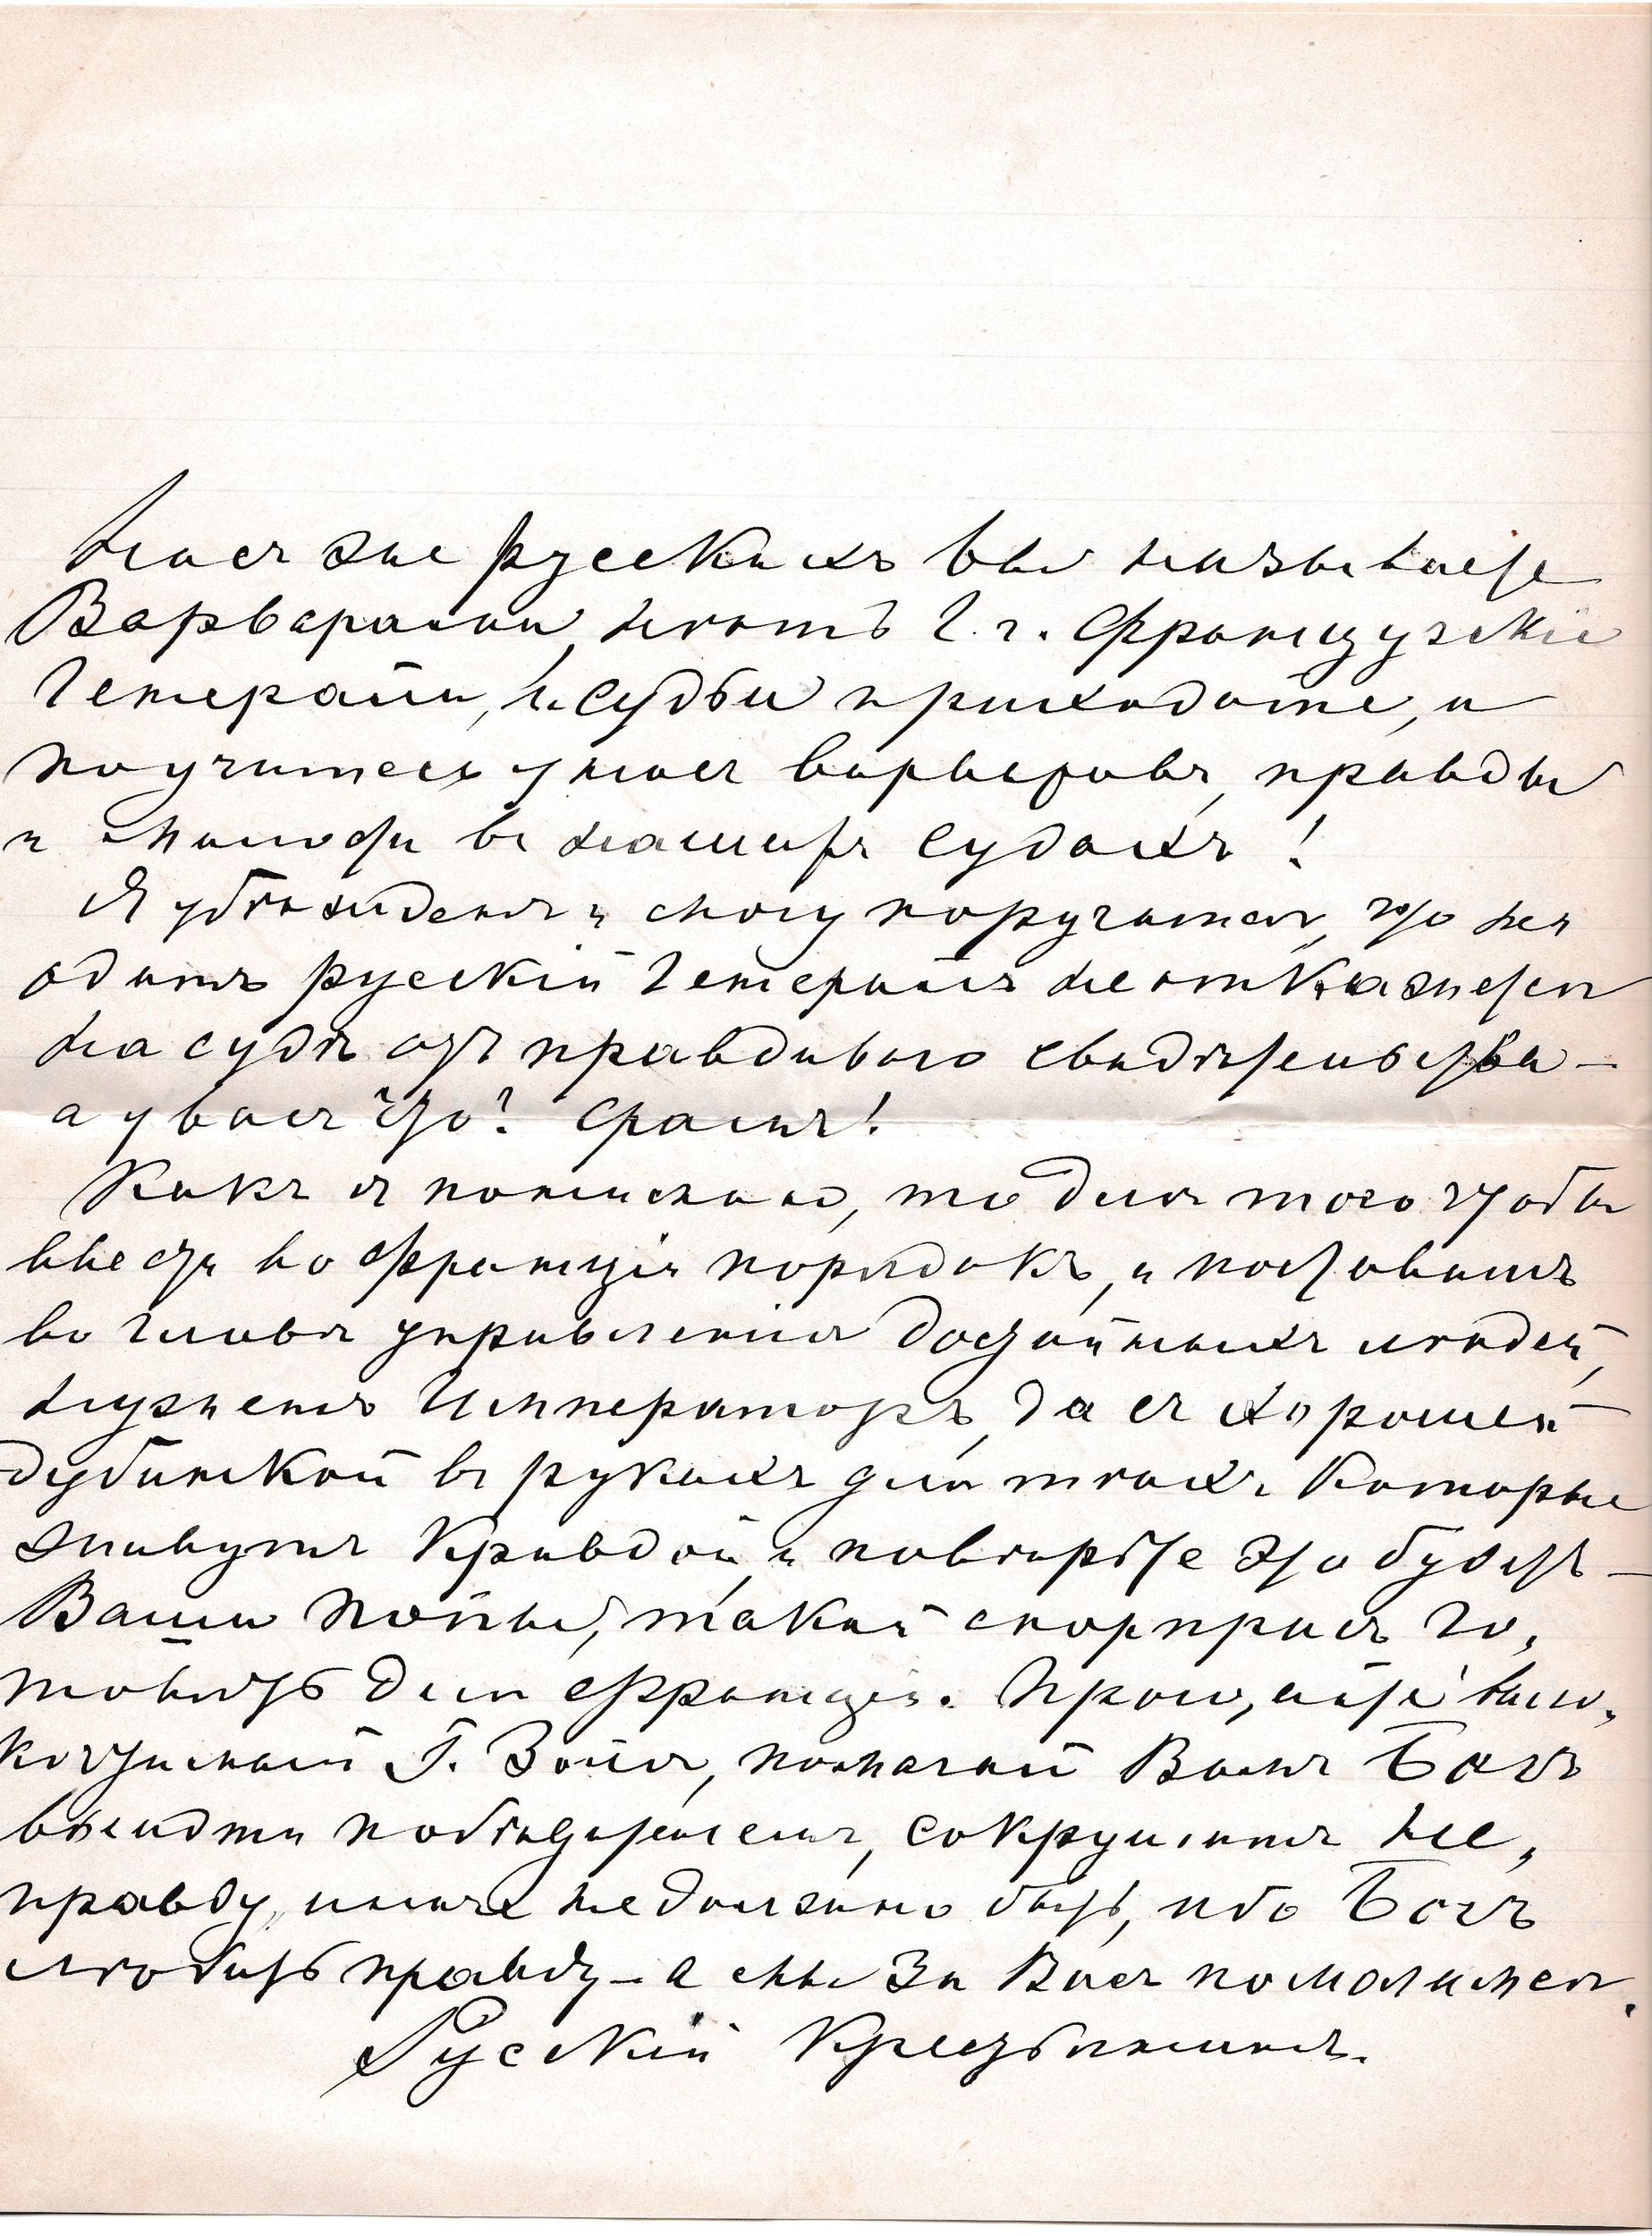 насъ же русскихъ вы называете
Варварами, нѣтъ Г.г. Французскіе
Генералы, и Судьи приходите, и
поучитесь у насъ варваровъ, правды
и милости въ нашихъ Судахъ!
Я убѣжденъ и смогу поручится, что не
одинъ русскій Генералъ не откажется
на судѣ отъ правдиваго свидѣтельства —
а у васъ что? Срамъ!
Какъ я понимаю, то для того чтобы
ввести во Франціи порядокъ, и поставить
во главѣ управленія достойныхъ людей,
нуженъ Императоръ, да съ хорошей
дубинкой въ рукахъ для тѣхъ, Которые
живутъ Кривдой, и повѣрьте это будетъ —
Ваши попы, такой сюрпризъ го„
товятъ для Франціи. Прощайте высо„
кочтимый Г. Золя, помогай Вамъ Богъ
выидти побѣдителемъ, сокрушить не„
правду, иначе не должно быть, ибо Богъ
любитъ правду — а мы За Васъ помолимся.
Русскій Крестьянинъ.